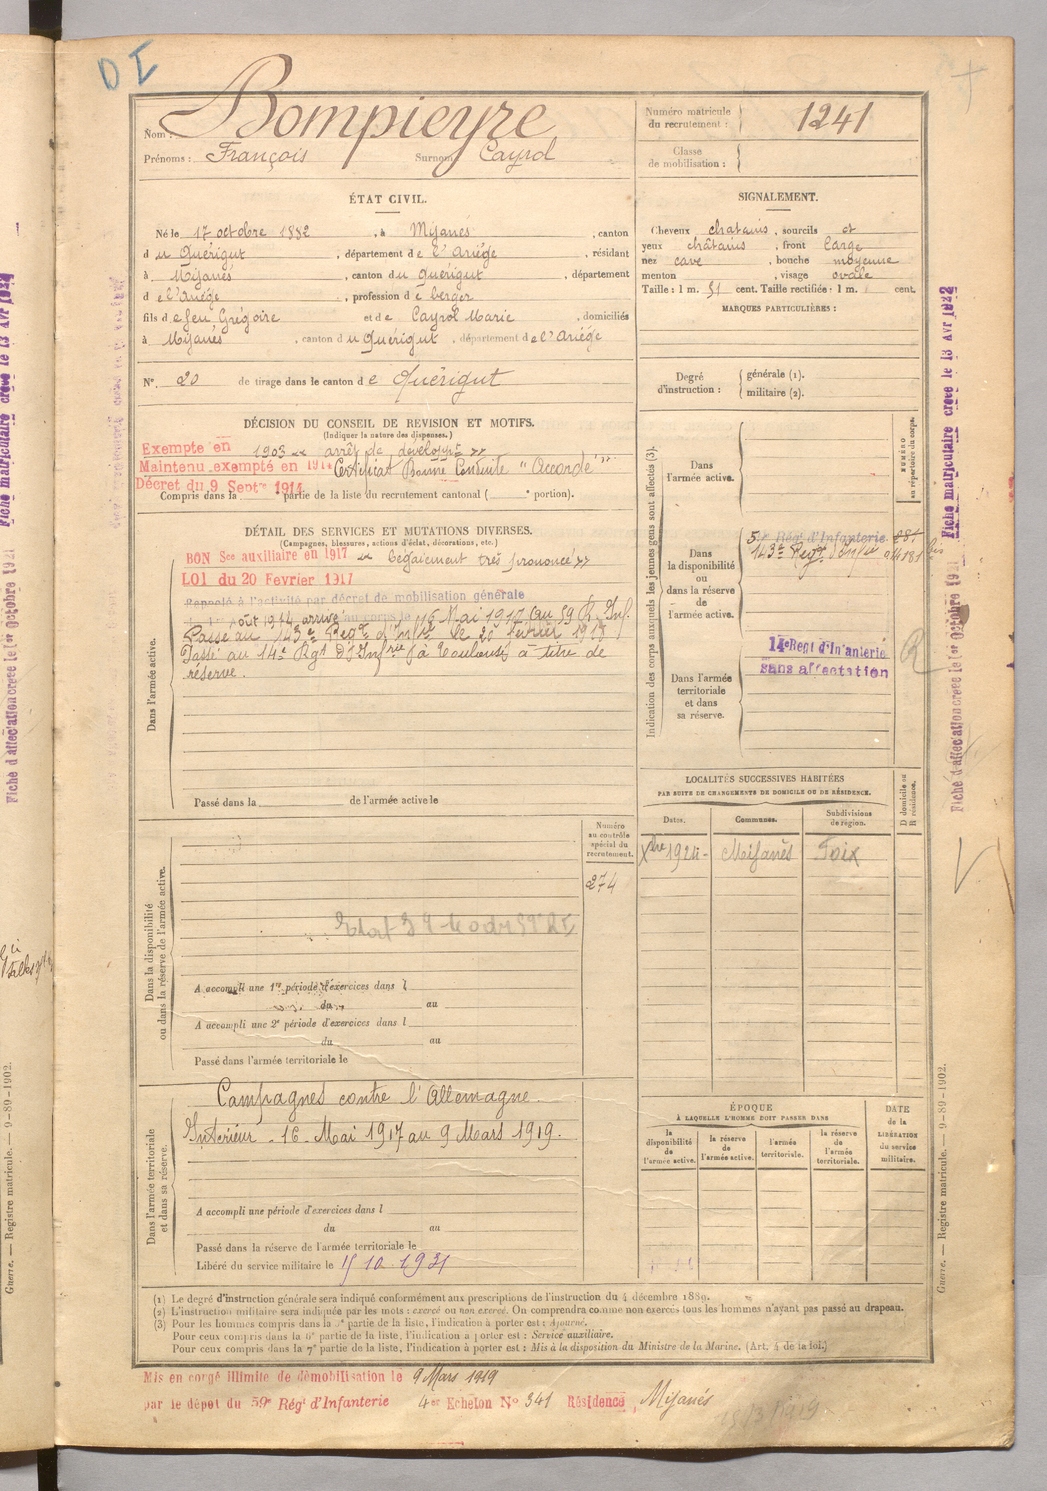 D I
Nom : Bompieyre
Prénoms : François Surnom Cayrol
Numéro matricule
du recrutement : 1241
Classe
de mobilisation :
ÉTAT CIVIL.
Né le 17 octobre 1882, à Mijanès, canton
du Quérigut, département de l'Ariège, résidant
à Mijanès, canton du Quérigut, département
de l'Ariège, profession de berger
fils de feu Grégoire et de Cayrol Marie, domiciliés
à Mijanès, canton du Quérigut, département de l'Ariège
N° 20 de tirage dans le canton de Quérigut
SIGNALEMENT.
Cheveux chatains, sourcils et
yeux châtains, front large
nez cave, bouche moyenne
menton , visage ovale
Taille : 1 m. 51 cent. Taille rectifiée : 1 m. cent.
MARQUES PARTICULIÈRES :
Degré
d'instruction :
générale (1).
militaire (2).
DÉCISION DU CONSEIL DE REVISION ET MOTIFS.
(Indiquer la nature des dispenses.)
Exempté en 1903 « arrêt de developmt »
Maintenu exempté en 1914 Certificat Bonne Conduite "Accordé"
Décret du 9 Septre 1914
Compris dans la e partie de la liste du recrutement cantonal ( e portion).
DÉTAIL DES SERVICES ET MUTATIONS DIVERSES.
(Campagnes, blessures, actions d'éclat, décorations, etc.)
BON Sce auxiliaire en 1917 « begaiement très prononcé »
LOI du 20 Fevrier 1917
Rappelé à l'activité par décret de mobilisation générale
août 1914 arrivé au corps le 16 Mai 1917 (au 59 R. Inf.
Passé au 143e Regt d'Infie le 20 février 1918)
Passé au 14e Rgt D'Infrie (à Toulouse) à titre de
réserve.
Dans l'armée active.
Passé dans la de l'armée active le
Indication des corps auxquels les jeunes gens sont affectés (3).
NUMÉRO
au répertoire du corps.
Dans
l'armée active.
Dans
la disponibilité
ou
dans la réserve
de
l'armée active.
Rég. d'Infanterie
143e Regt d'Infie
14e Regt d'Infanterie
sans affectation
R
Dans l'armée
territoriale
et dans
sa réserve.
LOCALITÉS SUCCESSIVES HABITÉES
PAR SUITE DE CHANGEMENTS DE DOMICILE OU DE RÉSIDENCE.
D domicile ou
R résidence.
Dates. Communes. Subdivisions
de région.
Mijanès Foix
Numéro
au contrôle
spécial du
recrutement.
274
Dans la disponibilité
ou dans la réserve de l'armée active.
A accompli une 1re période d'exercices dans l
du au
A accompli une 2e période d'exercices dans l
du au
Passé dans l'armée territoriale le
Campagnes contre l'Allemagne.
Intérieur - 16 Mai 1917 au 9 Mars 1919.
Dans l'armée territoriale
et dans sa réserve.
A accompli une période d'exercices dans l
du au
Passé dans la réserve de l'armée territoriale le
Libéré du service militaire le 15 10 1931
ÉPOQUE
À LAQUELLE L'HOMME DOIT PASSER DANS
la
disponibilité
de
l'armée active.
la réserve
de
l'armée active.
l'armée
territoriale.
la réserve
de
l'armée
territoriale.
DATE
de la
LIBÉRATION
du service
militaire.
(1) Le degré d'instruction générale sera indiqué conformément aux prescriptions de l'instruction du 4 décembre 1889.
(2) L'instruction militaire sera indiquée par les mots : exercé ou non exercé. On comprendra comme non exercés tous les hommes n'ayant pas passé au drapeau.
(3) Pour les hommes compris dans la 5e partie de la liste, l'indication à porter est : Ajourné.
Pour ceux compris dans la 6e partie de la liste, l'indication à porter est : Service auxiliaire.
Pour ceux compris dans la 7e partie de la liste, l'indication à porter est : Mis à la disposition du Ministre de la Marine. (Art. 4 de la loi.)
Mis en congé illimité de démobilisation le 9 Mars 1919
par le dépôt du 59e Régt d'Infanterie 4er Echelon No 341 Résidence, Mijanés
Fiche matriculaire créée le 13 Avr 1922
Fiche d'affectation créée le 1er Octobre 1921
Guerre. — Registre matricule. — 9-89-1902.
Fiche matriculaire créée le 13 Avr 1922
Fiche d'affectation créée le 1er Octobre 1921
Guerre. — Registre matricule. — 9-89-1902.